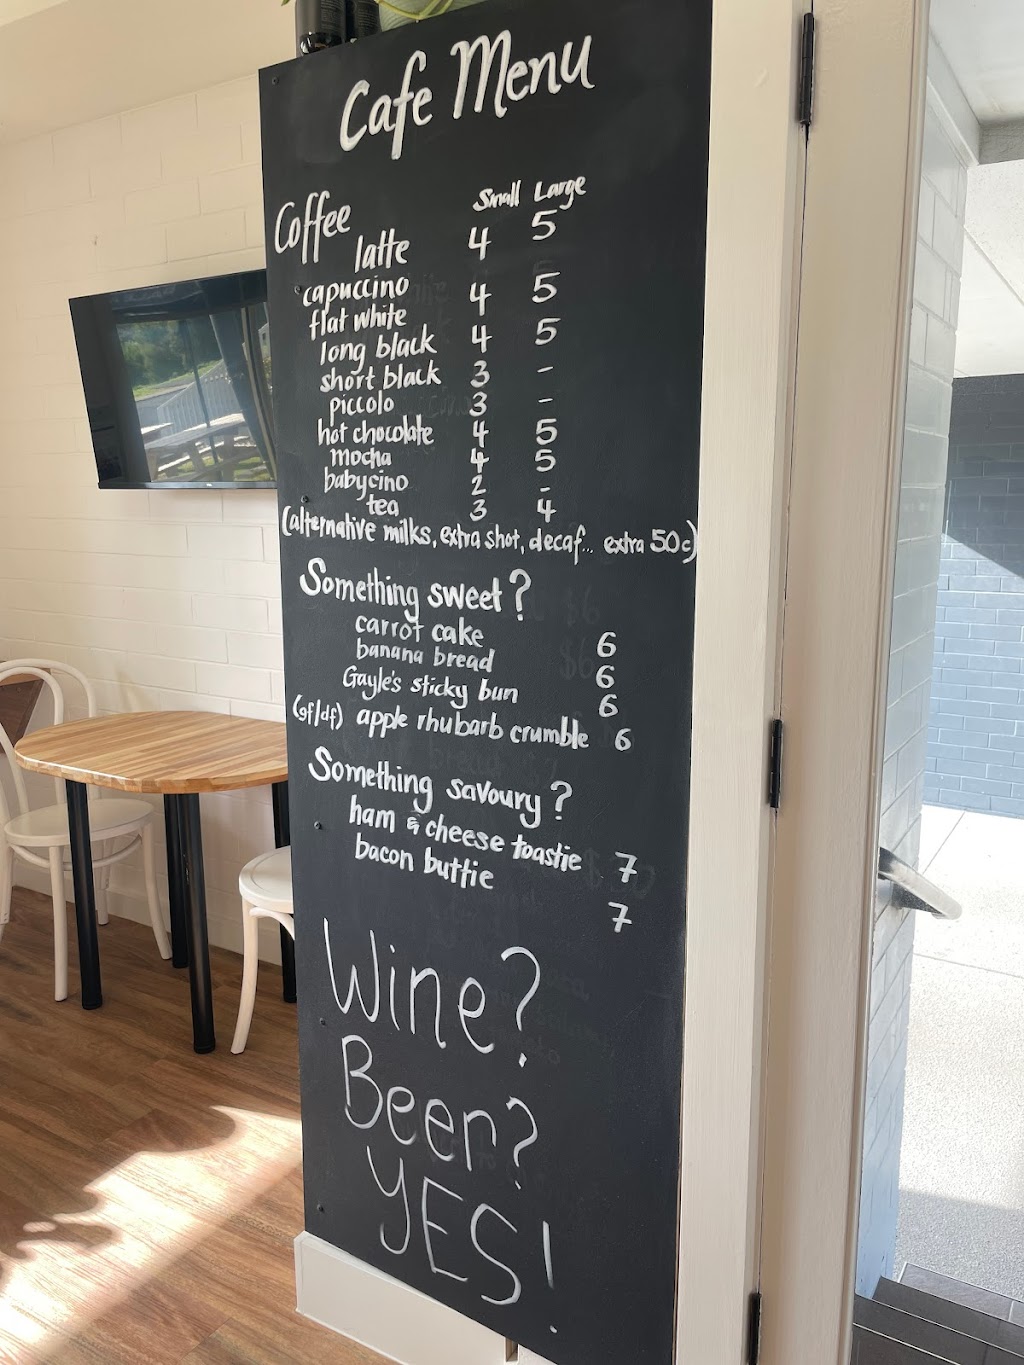 Cafe Menu
Small Large
Coffee
latte 4 5
capuccino 4 5
flat white
long black 4 5
short black 3 -
piccolo 3 -
hot chocolate 4 5
mocha 4 5
babycino 2 -
tea 3 4
(alternative milks, extra shot, decaf... extra 50c)
Something sweet?
carrot cake 6
banana bread 6
Gayle's sticky bun 6
(gf/df) apple rhubarb crumble 6
Something savoury?
ham & cheese toastie 7
bacon buttie 7
Wine?
Beer?
YES!